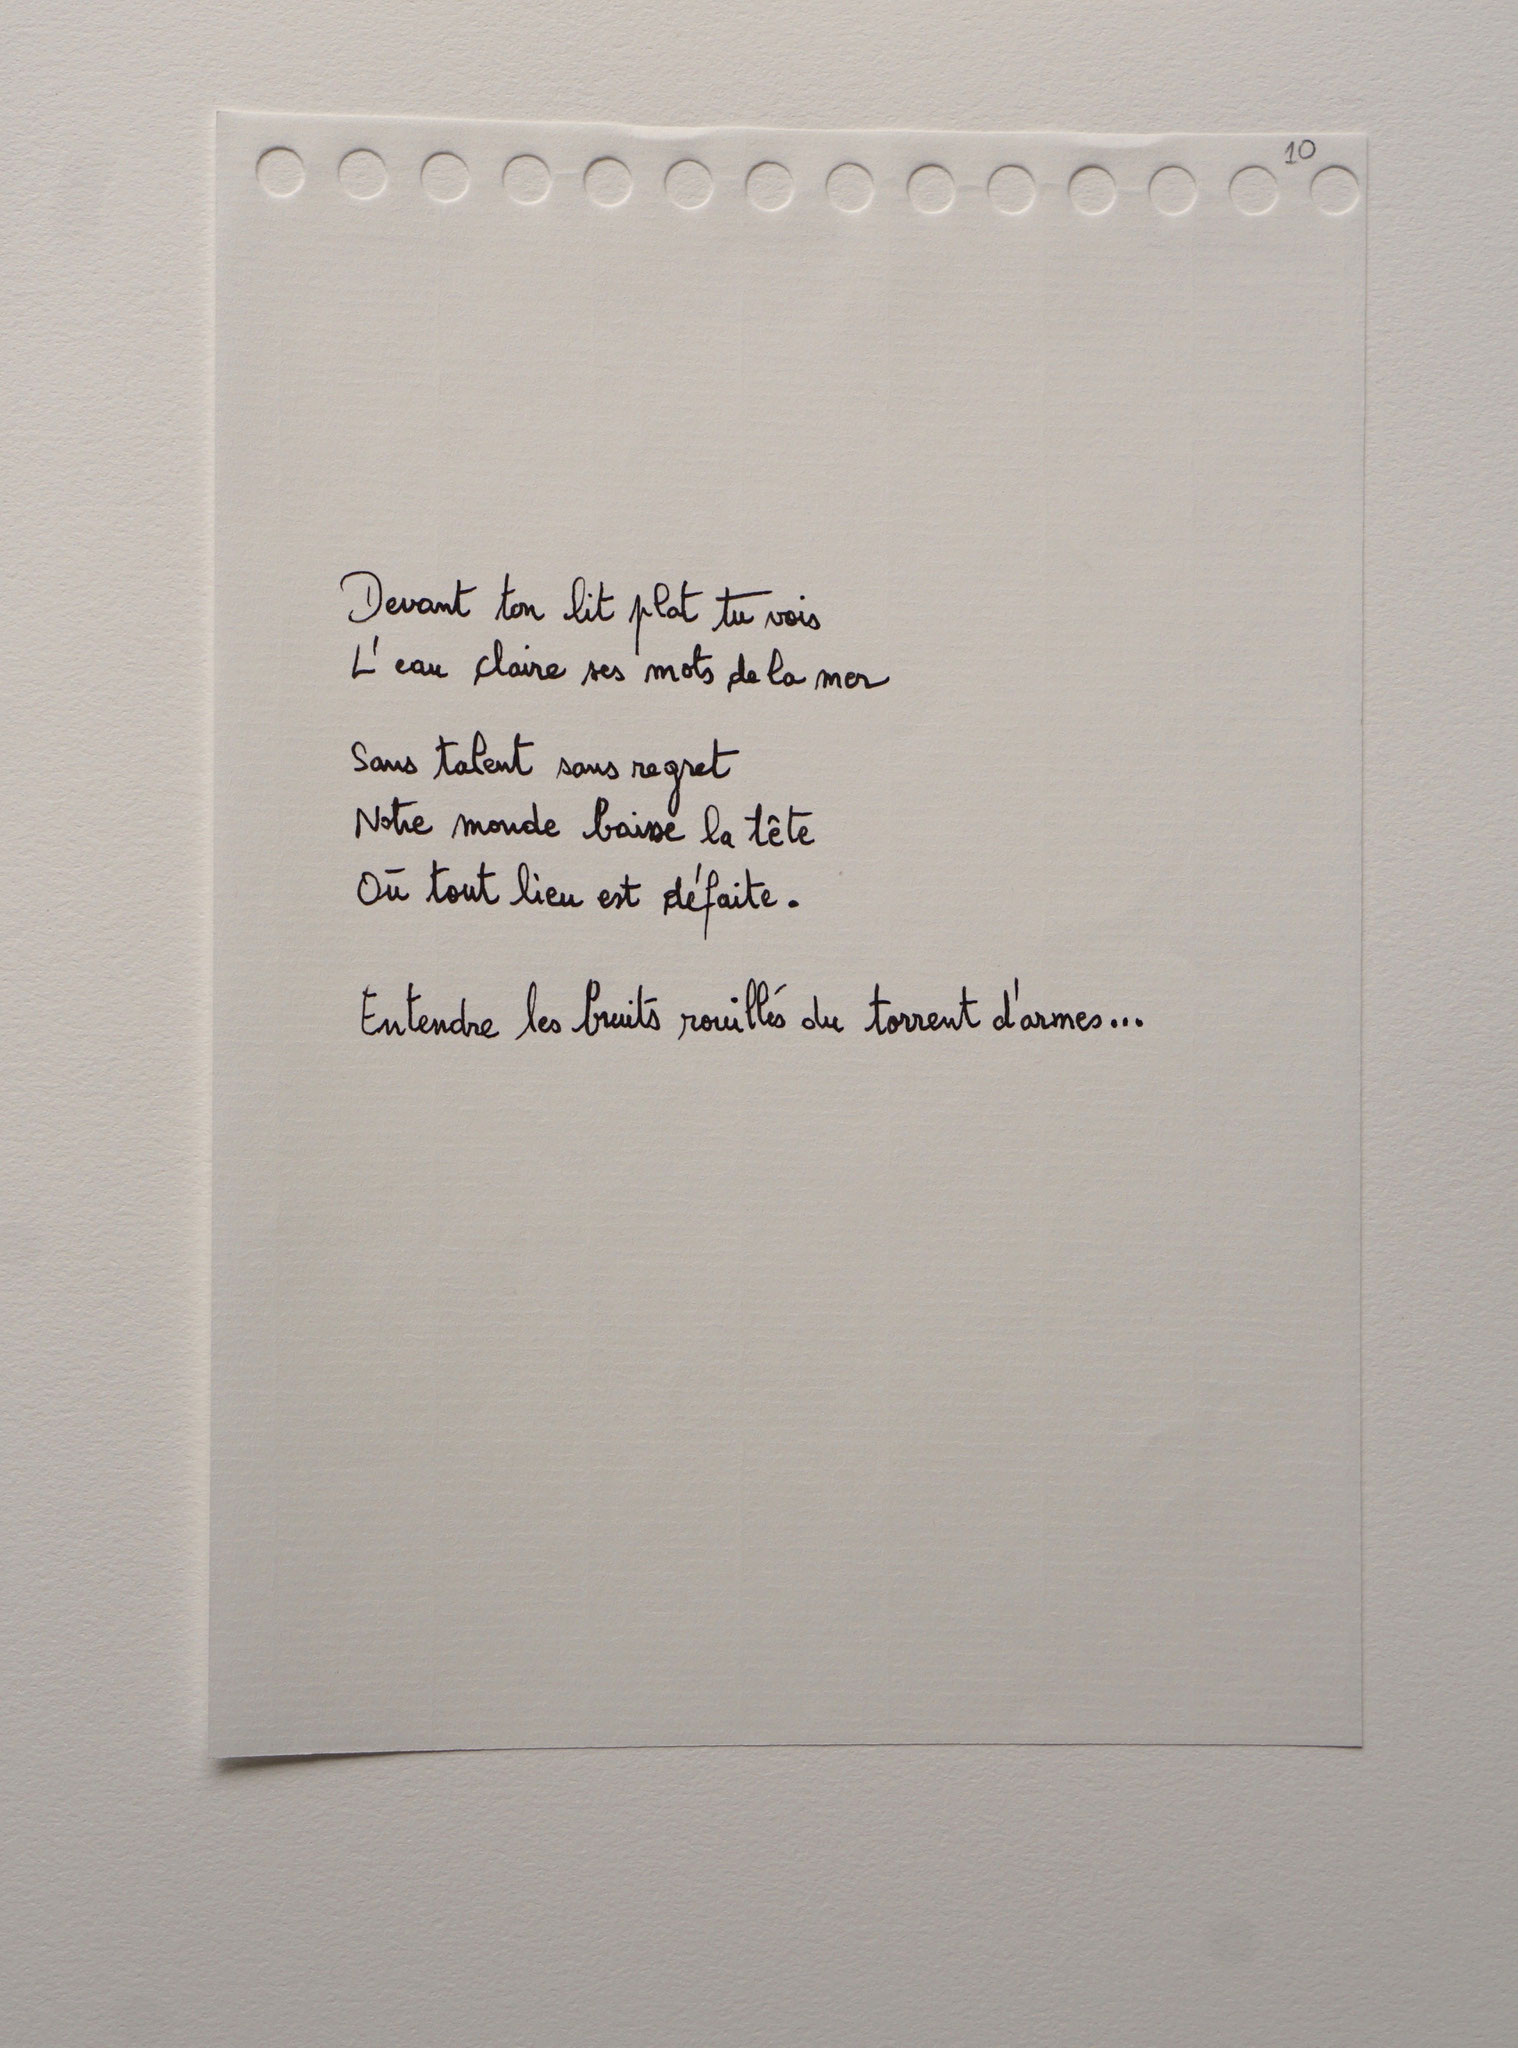 10
Devant ton lit plat tu vois
L'eau claire ses mots de la mer
Sans talent sans regret
Notre monde baisse la tête
Où tout lieu est défaite.
Entendre les bruits rouillés du torrent d'armes...